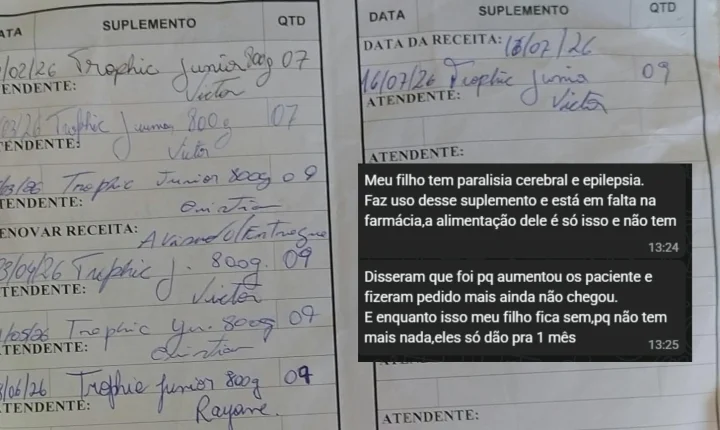 ATA SUPLEMENTO QTD
/02/26 Trophic Junior 800g 07
TENDENTE: Victor
/26 Trophic Junior 800g 07
TENDENTE: Victor
Trophic Junior 800g 09
TENDENTE:
ENOVAR RECEITA: Avisado/Entregue
/04/26 Trophic J. 800g. 09
TENDENTE: Victor
Trophic Jr. 800g 09
TENDENTE:
/06/26 Trophic Junior 800g 09
TENDENTE: Rayane.
DATA SUPLEMENTO QTD
DATA DA RECEITA: 16/07/26
16/07/26 Trophic Junior 09
ATENDENTE: Victor
ATENDENTE:
Meu filho tem paralisia cerebral e epilepsia.
Faz uso desse suplemento e está em falta na
farmácia,a alimentação dele é só isso e não tem
13:24
Disseram que foi pq aumentou os paciente e
fizeram pedido mais ainda não chegou.
E enquanto isso meu filho fica sem,pq não tem
mais nada,eles só dão pra 1 mês
13:25
ATENDENTE: